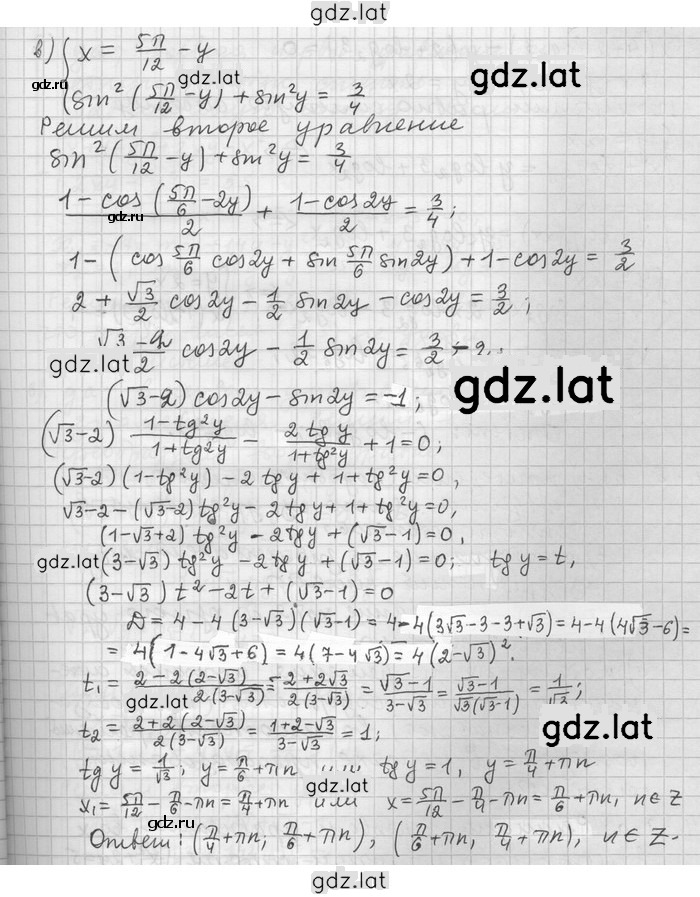 gdz.lat
в) { x = 5π/12 - y
sin²(5π/12 - y) + sin²y = 3/4
gdz.lat
gdz.lat
gdz.ru
Решим второе уравнение
sin²(5π/12 - y) + sin²y = 3/4
(1 - cos(5π/6 - 2y))/2 + (1 - cos2y)/2 = 3/4;
gdz.ru
1 - (cos 5π/6 cos2y + sin 5π/6 sin2y) + 1 - cos2y = 3/2
2 + √3/2 cos2y - 1/2 sin2y - cos2y = 3/2;
(√3 - 2)/2 cos2y - 1/2 sin2y = 3/2 - 2.
gdz.lat
gdz.lat
(√3-2) cos2y - sin2y = -1;
(√3-2) (1-tg²y)/(1+tg²y) - 2tgy/(1+tg²y) + 1 = 0;
(√3-2)(1-tg²y) - 2tgy + 1+tg²y = 0,
√3-2-(√3-2)tg²y - 2tgy + 1 + tg²y = 0,
(1-√3+2) tg²y - 2tgy + (√3-1) = 0,
gdz.lat (3-√3) tg²y - 2tgy + (√3-1) = 0; tg y = t,
(3-√3) t² - 2t + (√3-1) = 0
D = 4-4(3-√3)(√3-1) = 4-4(3√3-3-3+√3) = 4-4(4√3-6) =
= 4(1-4√3+6) = 4(7-4√3) = 4(2-√3)².
t₁ = (2-2(2-√3))/(2(3-√3)) = (-2+2√3)/(2(3-√3)) = (√3-1)/(3-√3) = (√3-1)/(√3(√3-1)) = 1/√3;
gdz.lat
gdz.lat
t₂ = (2+2(2-√3))/(2(3-√3)) = (1+2-√3)/(3-√3) = 1;
tg y = 1/√3; y = π/6 + πn или tg y = 1, y = π/4 + πn
x₁ = 5π/12 - π/6 - πn = π/4 + πn или x = 5π/12 - π/4 - πn = π/6 + πn, n∈Z
gdz.ru
Ответ: (π/4 + πn, π/6 + πn), (π/6 + πn, π/4 + πn), n∈Z.
gdz.lat